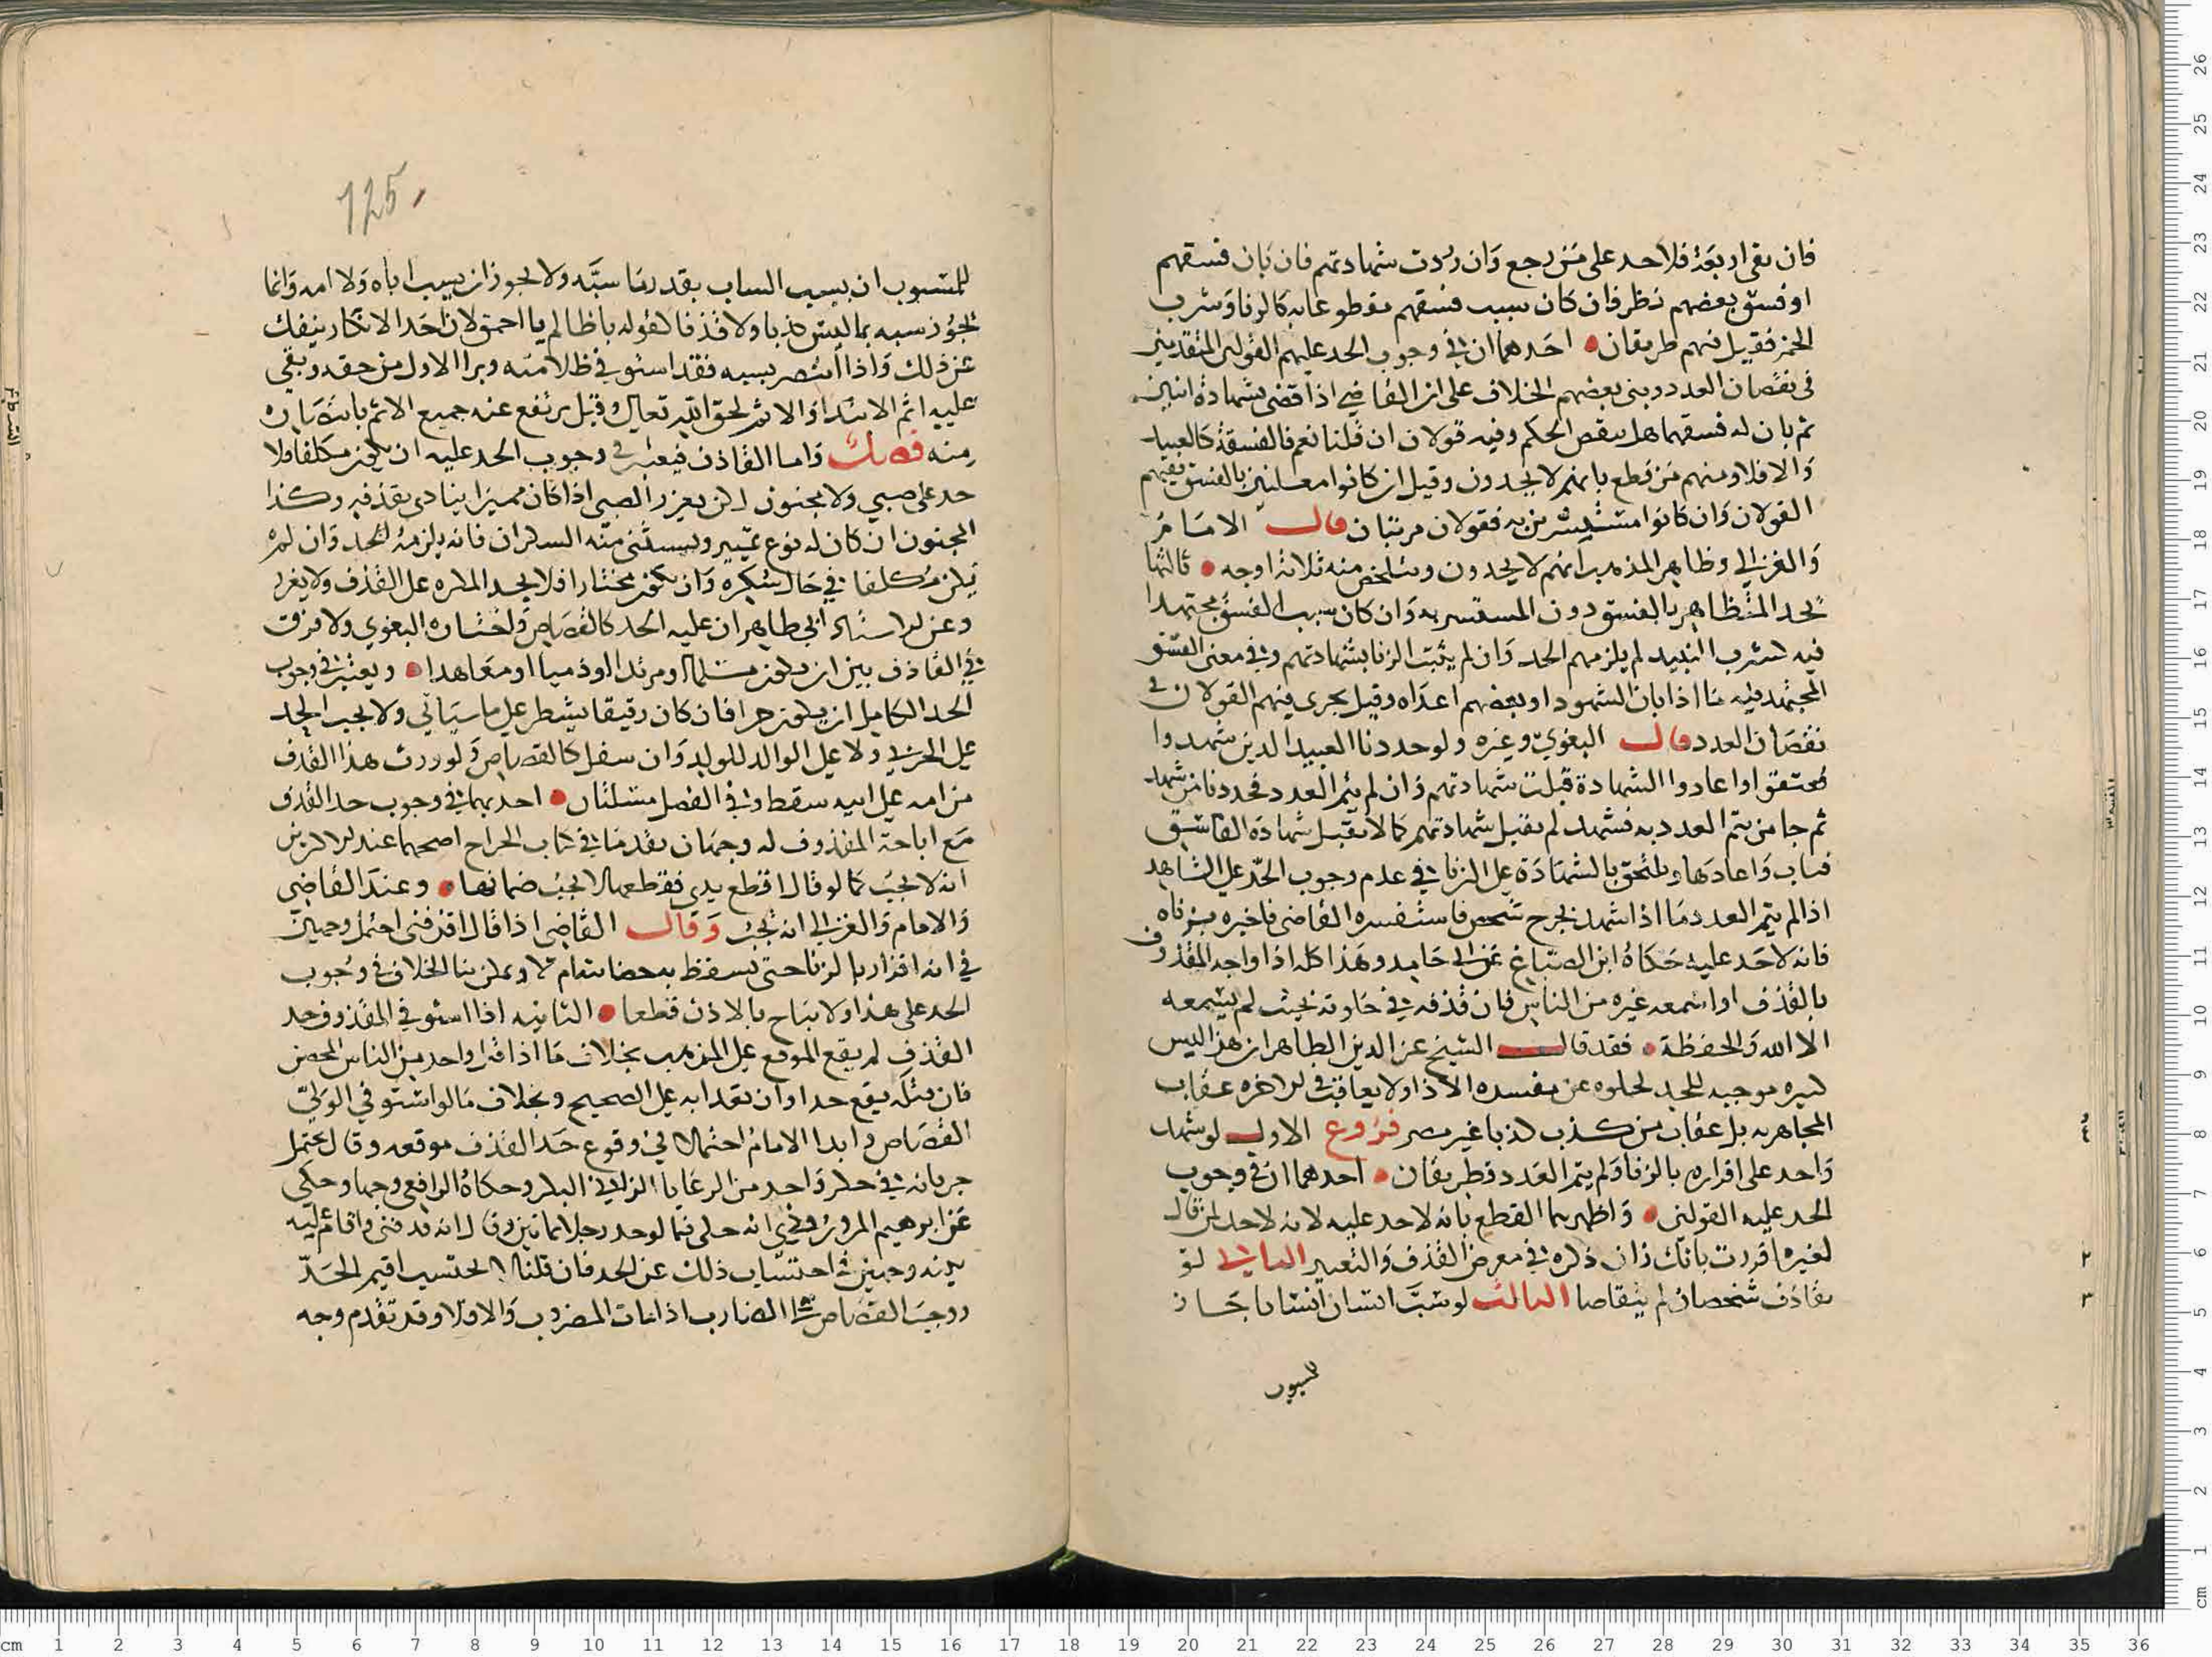 فان بقى اربعة فلا حد على من رجع وان ردت شهادتهم فان بان فسقهم
او فسق بعضهم نظر فان كان سبب فسقهم مقطوعا به كالزنا وشرب
الخمر فقيل فيهم طريقان احدهما ان في وجوب الحد عليهم القولين المتقدمين
في نقصان العدد وبنى بعضهم الخلاف على ان القاضي اذا قضى بشهادة اثنين
ثم بان له فسقهما هل ينقض الحكم وفيه قولان ان قلنا نعم فالفسقة كالعبيد
والا فلا ومنهم من قطع بانهم لا يحدون وقيل ان كانوا معلنين بالفسق ففيهم
القولان وان كانوا مستترين به فقولان مرتبان قال الامام
والغزالي وظاهر المذهب انهم لا يحدون وينتلخص منه ثلاثة اوجه ثالثها
يحد المتظاهر بالفسق دون المستسر به وان كان سبب الفسق مجتهدا
فيه كشرب النبيد لم يلزمهم الحد وان لم يثبت الزنا بشهادتهم وفي معنى الفسق
المجتهد فيه ما اذا بان الشهود او بعضهم اعداه وقيل يجرى فيهم القولان في
نقصان العدد قال البغوي وغيره ولو حددنا العبيد الدين شهدوا
فعتقوا واعادوا الشهادة قبلت شهادتهم وان لم يتم العدد فحددنا من شهد
ثم جا من يتم العدد به فشهد لم تقبل شهادتهم كما لا تقبل شهادة الفاسق
فتاب واعادها ويلتحق بالشهادة على الزنا في عدم وجوب الحد على الشاهد
اذا لم يتم العدد ما اذا شهد بجرح شخص فاستفسره القاضي فاخبره بزناه
فانه لا حد عليه حكاه ابن الصباغ عن ابي حامد وهذا كله اذا واجه المقذوف
بالقذف او اسمعه غيره من الناس فان قذفه في خلوته بحيث لم يسمعه
الا الله والحفظة فقد قال الشيخ عز الدين الظاهر ان هذا ليس
كبيره موجبه للحد لخلوه عن مفسده الاذا ولا يعاقب في الاخره عقاب
المجاهر به بل عقاب من كذب كذبا غير مضر فروع الاول لو شهد
واحد على اقراره بالزنا ولم يتم العدد فطريقان احدهما ان في وجوب
الحد عليه القولين واظهرهما القطع بانه لا حد عليه لانه لا حد لمن قال
لغيره اقررت بانك زان ذكره في معرض القذف والتعيير الثاني لو
تقاذف شخصان لم يتقاصا الثالث لو سب انسان انسانا جاز
للمسبوب
125
للمسبوب ان يسب الساب بقدر ما سبه ولا يجوز ان يسب اباه ولا امه وانما
يجوز سبه بما ليس كذبا ولا قذفا كقوله يا ظالم يا احمق لان احدا لا يكاد ينفك
عن ذلك واذا انتصر بسبه فقد استوفى ظلامته وبرا الاول من حقه وبقي
عليه اثم الابتدا والاثم لحق الله تعالى وقيل يرتفع عنه جميع الاثم بانتصاره
منه فصل واما القاذف فيعتبر في وجوب الحد عليه ان يكون مكلفا فلا
حد على صبي ولا مجنون لكن يعزر الصبي اذا كان مميزا يتاذى بقذفه وكذا
المجنون ان كان له نوع تمييز ويستثنى منه السكران فانه يلزمه الحد وان لم
يكن مكلفا في حال سكره وان يكون مختارا فلا يحد المكره على القذف ولا يعزر
وعن ابي طاهر ان عليه الحد كالقصاص واختاره البغوي ولا فرق
في القاذف بين ان يكون مسلما او مرتدا او ذميا او معاهدا ويعتبر في وجوب
الحد الكامل ان يكون حرا فان كان رقيقا يشطر على ما سياتي ولا يجب الحد
على الحربي ولا على الوالد للولد وان سفل كالقصاص ولو ورث هذا القذف
من امه على ابيه سقط وفي الفصل مسلتان احديهما في وجوب حد القذف
مع اباحة المقذوف له وجهان تقدما في كتاب الجراح اصحهما عند الاكثرين
انه لا يجب كما لو قال اقطع يدي فقطعها لا يجب ضمانها وعند القاضي
والامام والغزالي انه يجب وقال القاضي اذا قال اقذفني احتمل وجهين
في انه اقرار بالزنا حتى يسقط به حصانته ام لا ويمكن بنا الخلاف في وجوب
الحد على هذا ولا يباح بالاذن قطعا الثانيه اذا استوفى المقذوف حد
القذف لم يقع الموقع على المذهب بخلاف ما اذا قتل واحد من الناس المحصن
فان قتله يقع حدا وان تعدا به على الصحيح وبخلاف ما لو استوفى الولي
القصاص وابدا الامام احتمالا في وقوع حد القذف موقعه وقال يحتمل
جريانه في جلد واحد من الرعايا الزاني البكر وحكاه الرافعي وجها وحكى
عن ابرهيم المروروذي انه حكى فيما لو حد رجل اماتين وقال انه قد فني واقام اليه
بينه وجهين في احتساب ذلك عن الحد فان قلنا لا يحتسب اقيم الحد
ووجب القصاص على الضارب اذا مات المضروب والا فلا وقد تقدم وجه